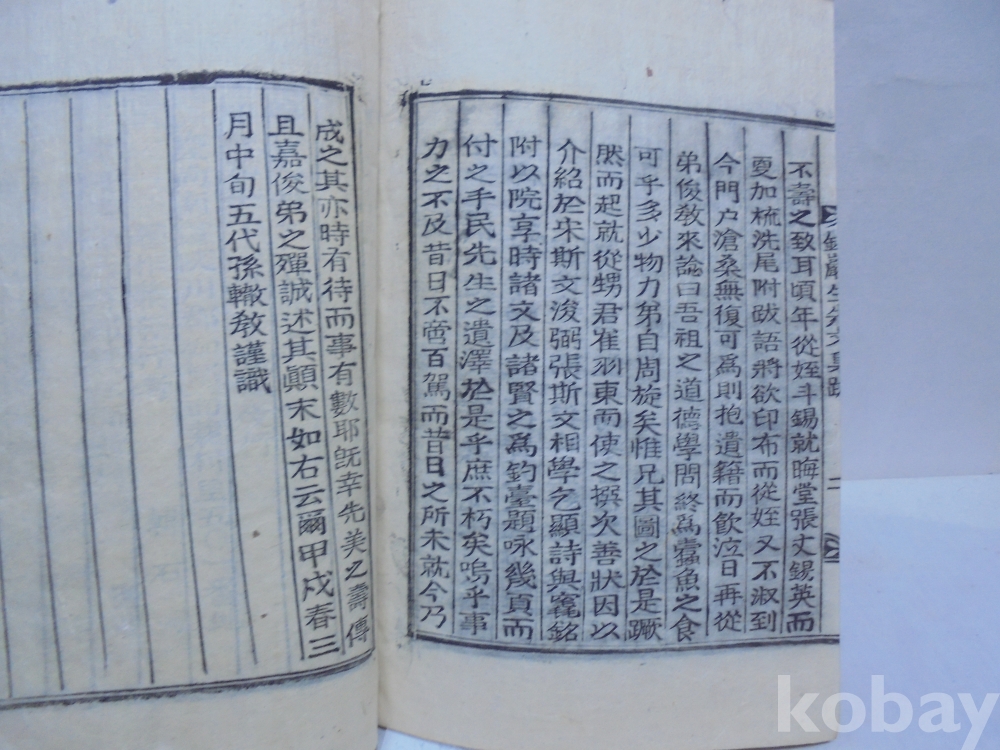 不壽之致耳頃年從姪斗錫就晦堂張丈錫英而
夏加梳洗尾附跋語將欲印布而從姪又不淑到
今門户滄桑無復可爲則抱遺籍而飮泣日再從
弟俊敎來論曰吾祖之道德學問終爲蠹魚之食
可乎多少物力弟自周旋矣惟兄其圖之於是蹶
然而起就從甥君崔羽東而使之撰次善狀因以
介紹於宋斯文浚弼張斯文相學乞顯詩與竁銘
附以院享時諸文及諸賢之爲釣臺題咏幾頁而
付之手民先生之遺澤於是乎庶不朽矣嗚乎事
力之不及昔日不啻百駕而昔日之所未就今乃
成之其亦時有待而事有數耶旣幸先美之壽傳
且嘉俊弟之殫誠述其顚末如右云爾甲戍春三
月中旬五代孫轍敎謹識
kobay